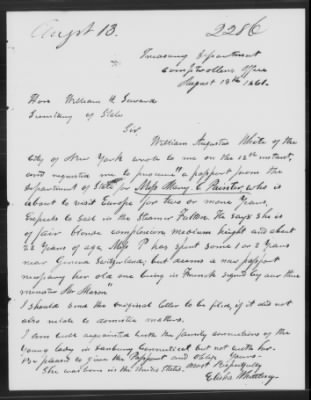 Augst 13.
2286
Treasury Department
Comptrollers Office
August 13th 1861.
Hon William H. Seward
Secretary of State
Sir
William Augustus White of the
City of New York wrote to me on the 12th instant,
and requested me to procure "a passport from the
Department of State for Miss Mary C Painter, who is
about to visit Europe for two or more years,
Expects to sail in the Steamer Fulton. He says She is
of fair blonde complexion medium height and about
22 years of age, Miss P has spent some 1 or 2 years
near Geneva Switzerland; but deems a new passport
necessary her old one being in French signed by our then
minister Mr Mason"
I should send the original letter to be filed, if it did not
also relate to domestic matters.
I am well acquainted with the family connections of the
young lady in Danbury Connecticut but not with her.
Be pleased to give the Passport and oblige Yours-
She was born in the United States. Most Respectfully
Elisha Whittlesey